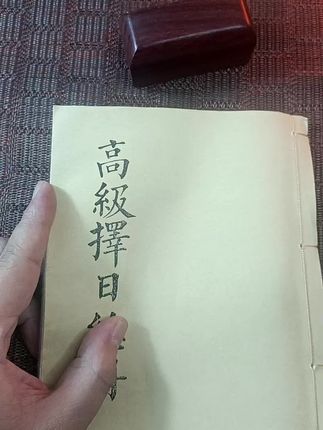 高級擇日